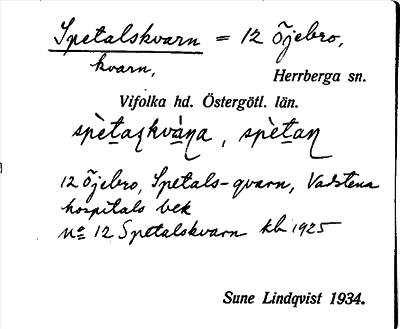 Spetalskvarn = 12 Öjebro,
kvarn,
Herrberga sn.
Vifolka hd. Östergötl. län.
spètaʂkvá̱ṇa, spètaṇ
12 Öjebro, Spetals-qvarn, Vadstena
hospitals bek
No 12 Spetalskvarn kb 1925
Sune Lindqvist 1934.